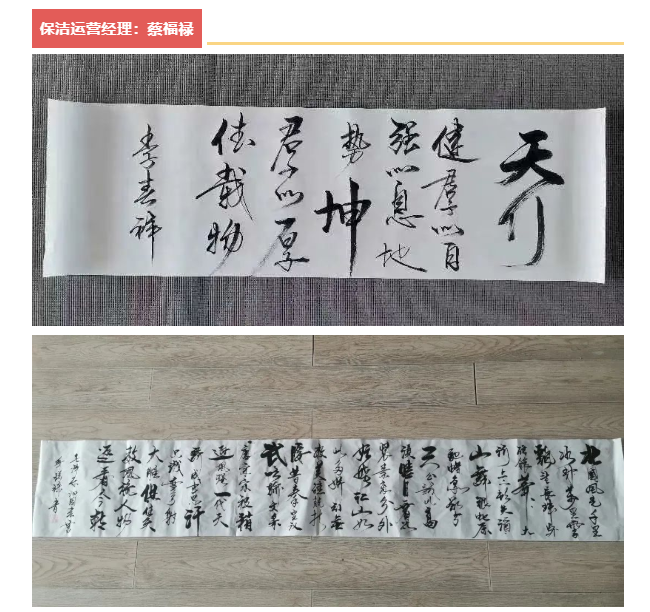 保洁运营经理：蔡福禄
天行
健君子以自
强不息地
势坤
君子以厚
德载物
北国风光千里
冰封万里雪
飘望长城内外
惟余莽莽大
河上下顿失滔
山舞银蛇原
驰蜡象欲与
天公试比高
须晴日看
装素裹分外
妖娆江山如
此多娇引无
数英雄竞折
腰惜秦皇汉
武略输文采
唐宗宋祖稍
逊风骚一代天
骄成吉思汗
只识弯弓射
大雕俱往矣
数风流人物
还看今朝